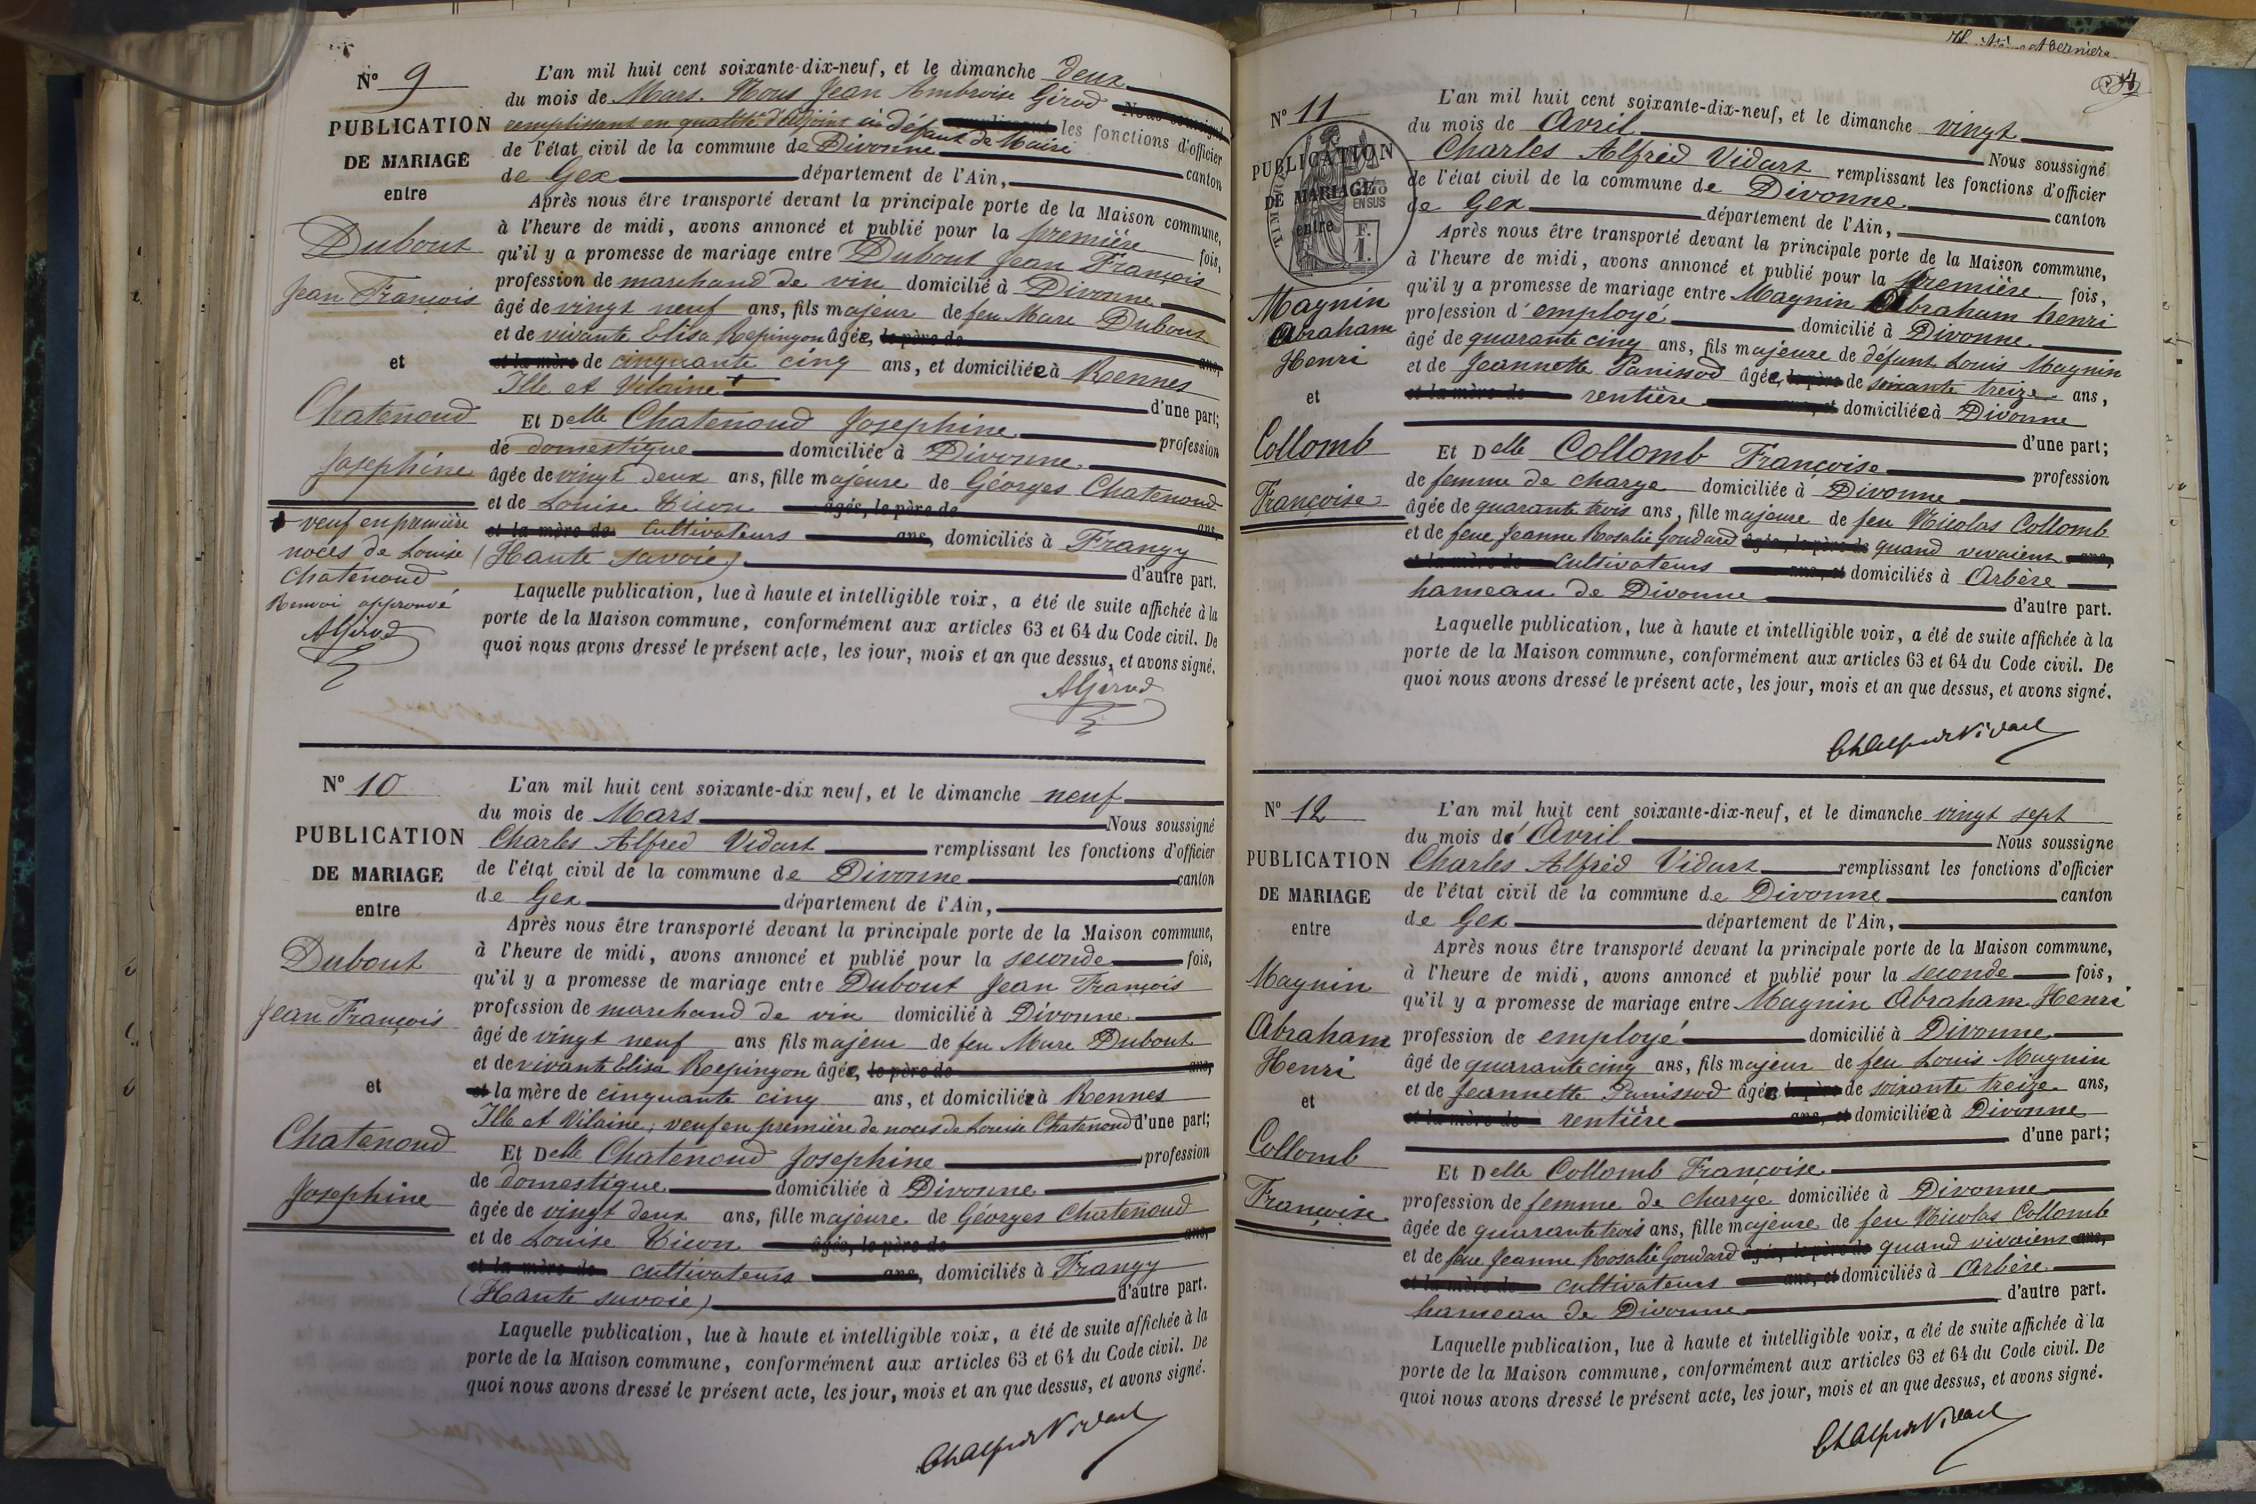 N° 9
PUBLICATION
DE MARIAGE
entre
Dubout
Jean François
et
Chatenoud
Josephine
+ veuf en première
noces de Louise
Chatenoud
Renvoi approuvé
AGirod
L'an mil huit cent soixante-dix-neuf, et le dimanche deux
du mois de Mars. Nous Jean Ambroise Girod Nous soussigné
remplissant en qualité d'adjoint à défaut de Maire les fonctions d'officier
de l'état civil de la commune de Divonne canton
de Gex département de l'Ain,
Après nous être transporté devant la principale porte de la Maison commune,
à l'heure de midi, avons annoncé et publié pour la première fois,
qu'il y a promesse de mariage entre Dubout Jean François
profession de marchand de vin domicilié à Divonne
âgé de vingt neuf ans, fils majeur de feu Marc Dubout
et de vivante Elisa Repingon âgée, le père de ans,
et la mère de de cinquante cinq ans, et domiciliée à Rennes
Ille et Vilaine + d'une part;
Et Delle Chatenoud Josephine profession
de domestique domiciliée à Divonne
âgée de vingt deux ans, fille majeure de Géorges Chatenoud
et de Louise Ticon âgés, le père de ans,
et la mère de cultivateurs ans, domiciliés à Frangy
(Haute savoie) d'autre part.
Laquelle publication, lue à haute et intelligible voix, a été de suite affichée à la
porte de la Maison commune, conformément aux articles 63 et 64 du Code civil. De
quoi nous avons dressé le présent acte, les jour, mois et an que dessus, et avons signé.
AGirod
N° 10
PUBLICATION
DE MARIAGE
entre
Dubout
Jean François
et
Chatenoud
Josephine
L'an mil huit cent soixante-dix neuf, et le dimanche neuf
du mois de Mars Nous soussigné
Charles Alfred Vidart remplissant les fonctions d'officier
de l'état civil de la commune de Divonne canton
de Gex département de l'Ain,
Après nous être transporté devant la principale porte de la Maison commune,
à l'heure de midi, avons annoncé et publié pour la seconde fois,
qu'il y a promesse de mariage entre Dubout Jean François
profession de marchand de vin domicilié à Divonne
âgé de vingt neuf ans fils majeur de feu Marc Dubout
et de vivante Elisa Repingon âgée, le père de ans,
et la mère de cinquante cinq ans, et domiciliée à Rennes
Ille et Vilaine, veuf en première de noces de Louise Chatenoud d'une part;
Et Delle Chatenoud Josephine profession
de domestique domiciliée à Divonne
âgée de vingt deux ans, fille majeure de Géorges Chatenoud
et de Louise Ticon âgés, le père de ans,
et la mère de cultivateurs ans, domiciliés à Frangy
(Haute savoie) d'autre part.
Laquelle publication, lue à haute et intelligible voix, a été de suite affichée à la
porte de la Maison commune, conformément aux articles 63 et 64 du Code civil. De
quoi nous avons dressé le présent acte, les jour, mois et an que dessus, et avons signé.
ChAlfred Vidart
N° 11
PUBLICATION
DE MARIAGE
entre
Magnin
Abraham
Henri
et
Collomb
Françoise
L'an mil huit cent soixante-dix-neuf, et le dimanche vingt
du mois de Avril Nous soussigné
Charles Alfred Vidart remplissant les fonctions d'officier
de l'état civil de la commune de Divonne canton
de Gex département de l'Ain,
Après nous être transporté devant la principale porte de la Maison commune,
à l'heure de midi, avons annoncé et publié pour la première fois,
qu'il y a promesse de mariage entre Magnin Abraham henri
profession d'employé domicilié à Divonne
âgé de quarante cinq ans, fils majeure de défunt Louis Magnin
et de Jeannette Panissod âgée, le père de soixante treize ans,
et la mère de rentière ans, et domiciliée à Divonne
d'une part;
Et Delle Collomb Françoise profession
de femme de charge domiciliée à Divonne
âgée de quarante trois ans, fille majeure de feu Nicolas Collomb
et de feue Jeanne Rosalie Goudard âgés, le père de quand vivaient ans,
et la mère de Cultivateurs ans, et domiciliés à Arbère
hameau de Divonne d'autre part.
Laquelle publication, lue à haute et intelligible voix, a été de suite affichée à la
porte de la Maison commune, conformément aux articles 63 et 64 du Code civil. De
quoi nous avons dressé le présent acte, les jour, mois et an que dessus, et avons signé.
ChAlfred Vidart
N° 12
PUBLICATION
DE MARIAGE
entre
Magnin
Abraham
Henri
et
Collomb
Françoise
L'an mil huit cent soixante-dix-neuf, et le dimanche vingt sept
du mois d'Avril Nous soussigne
Charles Alfred Vidart remplissant les fonctions d'officier
de l'état civil de la commune de Divonne canton
de Gex département de l'Ain,
Après nous être transporté devant la principale porte de la Maison commune,
à l'heure de midi, avons annoncé et publié pour la seconde fois,
qu'il y a promesse de mariage entre Magnin Abraham Henri
profession de employé domicilié à Divonne
âgé de quarante cinq ans, fils majeur de feu Louis Magnin
et de Jeannette Panissod âgée le père de soixante treize ans,
et la mère de rentière ans, et domiciliée à Divonne
d'une part;
Et Delle Collomb Françoise
profession de femme de charge domiciliée à Divonne
âgée de quarante trois ans, fille majeure de feu Nicolas Collomb
et de feue Jeanne Rosalie Goudard âgés, le père de quand vivaient ans,
et la mère de cultivateurs ans, et domiciliés à Arbère
hameau de Divonne d'autre part.
Laquelle publication, lue à haute et intelligible voix, a été de suite affichée à la
porte de la Maison commune, conformément aux articles 63 et 64 du Code civil. De
quoi nous avons dressé le présent acte, les jour, mois et an que dessus, et avons signé.
ChAlfred Vidart